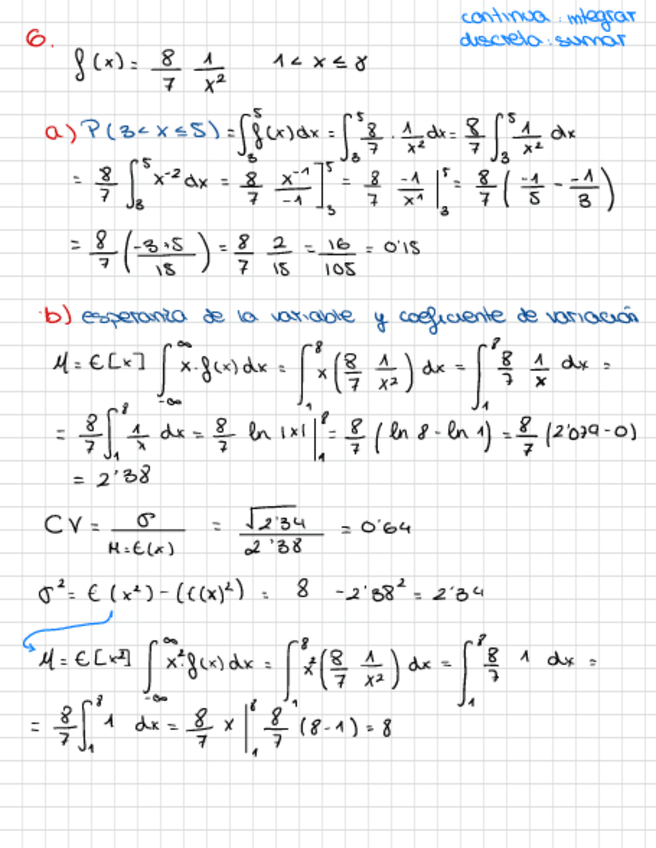 continua: integrar
discreta: sumar
6.
f(x) = 8/7 1/x² 1 < x ≤ 8
a) P(3 < x ≤ 5) = ∫₃⁵ f(x) dx = ∫₃⁵ 8/7 · 1/x² dx = 8/7 ∫₃⁵ 1/x² dx
= 8/7 ∫₃⁵ x⁻² dx = 8/7 x⁻¹/-1 ]₃⁵ = 8/7 -1/x¹ |₃⁵ = 8/7 (-1/5 - -1/3)
= 8/7 (-3+5/15) = 8/7 2/15 = 16/105 = 0'15
b) esperanza de la variable y coeficiente de variación
M = E[x] ∫₋∞^∞ x·f(x) dx = ∫₁⁸ x (8/7 1/x²) dx = ∫₁⁸ 8/7 1/x dx =
= 8/7 ∫₁⁸ 1/x dx = 8/7 ln |x| |₁⁸ = 8/7 (ln 8 - ln 1) = 8/7 (2'079 - 0)
= 2'38
CV = σ/M=E(x) = √2'34/2'38 = 0'64
σ² = E(x²) - (E(x)²) = 8 - 2'38² = 2'34
M = E[x²] ∫₋∞^∞ x²·f(x) dx = ∫₁⁸ x² (8/7 1/x²) dx = ∫₁⁸ 8/7 1 dx =
= 8/7 ∫₁⁸ 1 dx = 8/7 x |₁⁸ 8/7 (8-1) = 8